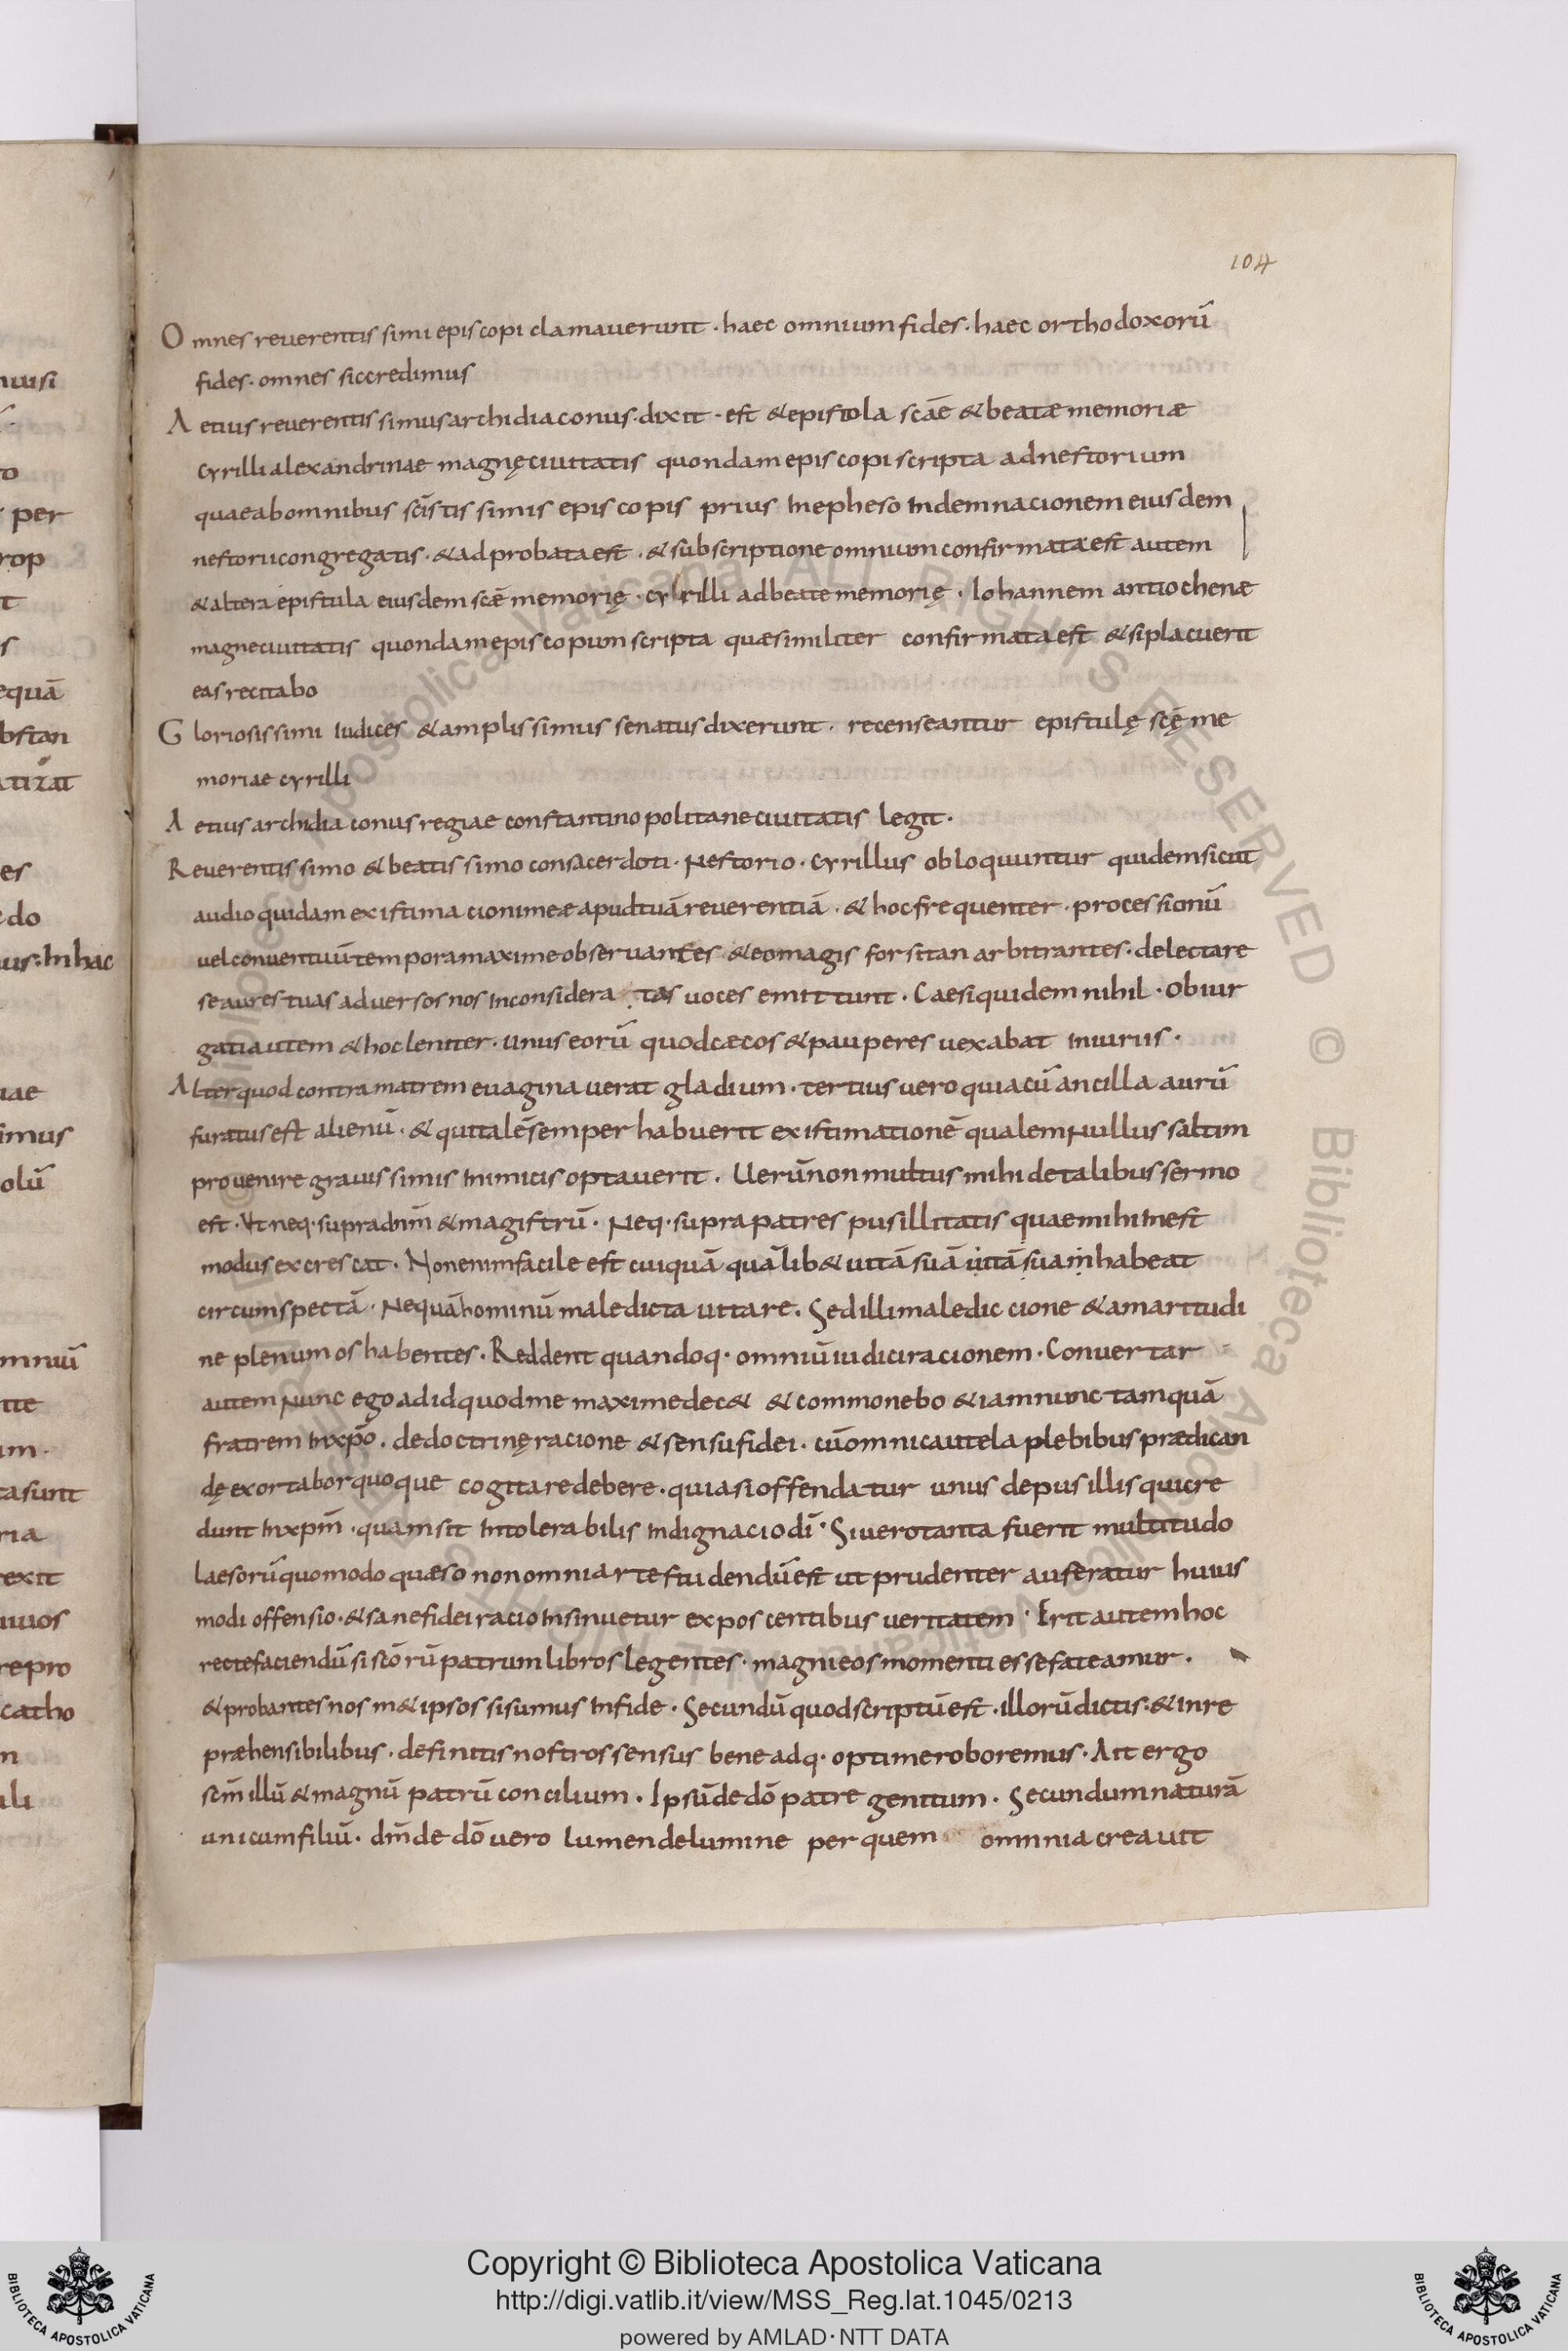 104
Omnes reuerentissimi episcopi clamauerunt · haec omnium fides · haec orthodoxorū
fides · omnes sic credimus
Aetius reuerentissimus archidiaconus · dixit · est & epistola scāe & beatæ memoriæ
cyrilli alexandrinae magnę ciuitatis quondam episcopi scripta ad nestorium
quae ab omnibus scīstissimis episcopis prius in epheso in demnacionem eiusdem
nestorii congregatis · & adprobata est · & subscriptione omnium confirmata est autem
& altera epistula eiusdem scāe memorię · cyrilli ad beate memorię · Iohannem antiochenæ
magne ciuitatis quondam episcopum scripta quæ similiter confirmata est & si placuerit
eas recitabo
Gloriosissimi iudices & amplissimus senatus dixerunt · recenseantur epistulę scę̄ me
moriae cyrilli
Aetius archidiaconus regiae constantinopolitane ciuitatis legit ·
Reuerentissimo & beatissimo consacerdoti · Nestorio · cyrillus obloquuntur quidem sicut
audio quidam existimacioni meæ apud tuā reuerentiā · & hoc frequenter · processionū
uel conuentuū tempora maxime obseruantes & eo magis forsitan arbitrantes · delectare
se aures tuas aduersos nos inconsideratas uoces emittunt · Caesi quidem nihil · obiur
gati autem & hoc leniter · unus eorū quod cæcos & pauperes uexabat iniuriis ·
Alter quod contra matrem euaginauerat gladium · tertius uero quia cū ancilla aurū
furatus est alienū · & qui talē semper habuerit existimationē qualem nullus saltim
prouenire grauissimis inimicis optauerit · Uerū non multus mihi de talibus sermo
est · Ut neq · supra dn̄m & magistrū · Neq · supra patres pusillitatis quae mihi inest
modus excrescat · Non enim facile est cuiquā quālib& uitā suā uitā suam habeat
circumspectā · Nequā hominū maledicta uitare · Sed illi malediccione & amaritudi
ne plenum os habentes · Reddent quandoq · omniū iudici racionem · Conuertar
autem nunc ego ad id quod me maxime dec& & commonebo & iam nunc tamquā
fratrem in xp̄o · de doctrinę racione & sensu fidei · cū omni cautela plebibus prædican
dę exortabor quoque cogitare debere · quia si offendatur unus de pusillis qui cre
dunt in xp̄m · quam sit intolerabilis indignacio dī · Si uero tanta fuerit multitudo
laesorū quomodo quæso non omni arte studendū est ut prudenter auferatur huius
modi offensio · & sane fidei racio insinuetur exposcentibus ueritatem · Erit autem hoc
recte faciendū si scōrū patrum libros legentes · magni eos momenti esse fateamur ·
& probantes nos m& ipsos si sumus in fide · Secundū quod scriptū est · illorū dictis · & inre
præhensibilibus · definitis nostros sensus bene adq · optime roboremus · Ait ergo
scm̄ illū & magnū patrū concilium · Ipsū de dō patre genitum · Secundum naturā
unicum filiū · dm̄ de dō uero lumen de lumine per quem omnia creauit
Copyright © Biblioteca Apostolica Vaticana
http://digi.vatlib.it/view/MSS_Reg.lat.1045/0213
powered by AMLAD·NTT DATA